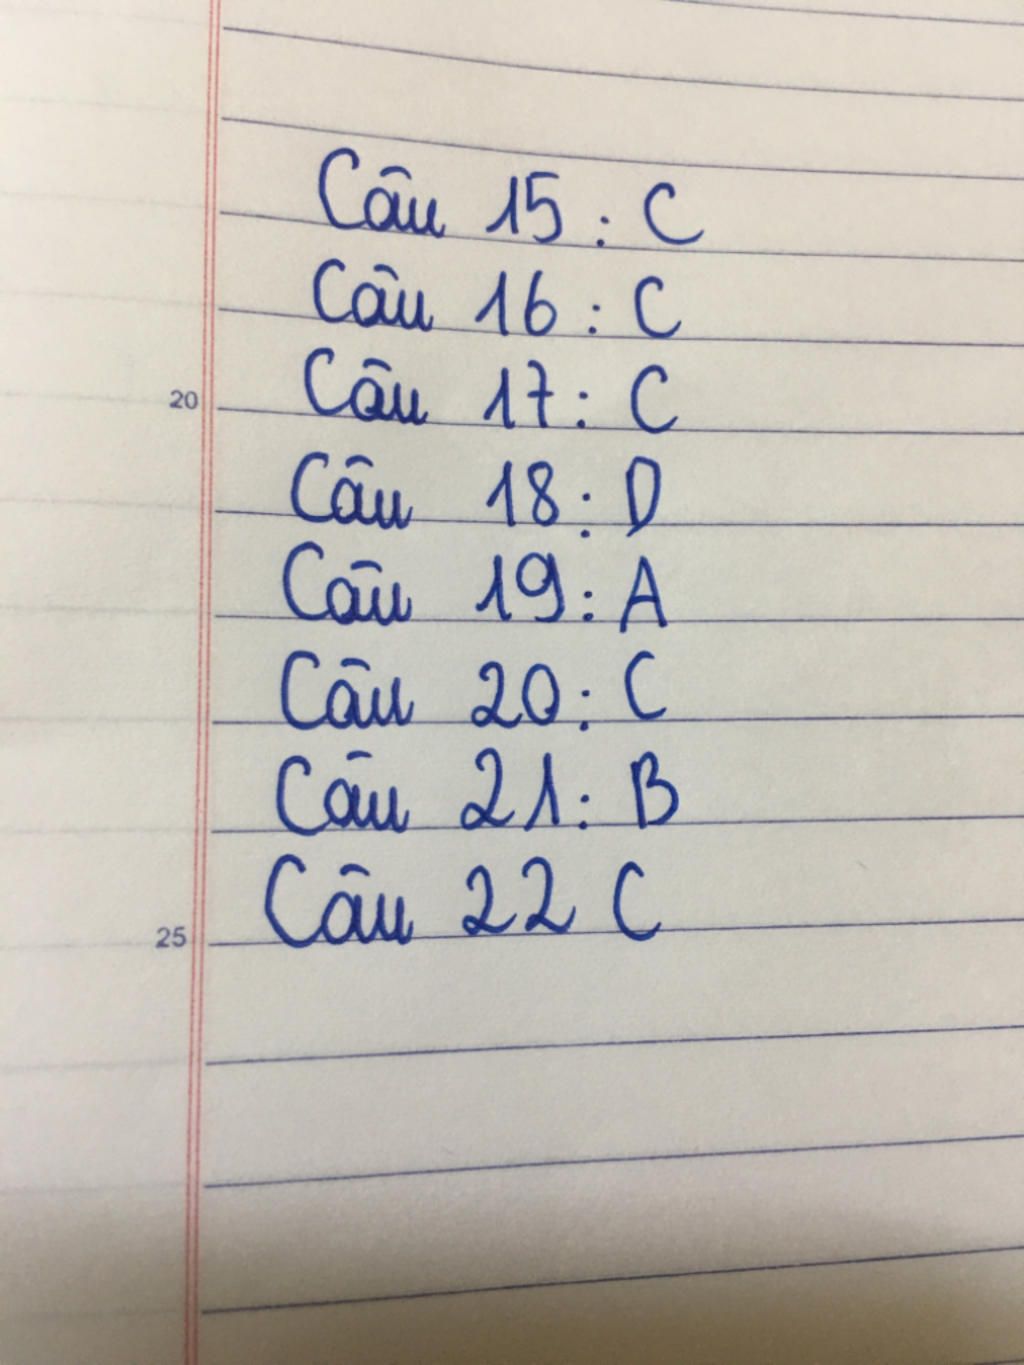 Câu 15 : C
Câu 16 : C
20
Câu 17 : C
Câu 18 : D
Câu 19 : A
Câu 20 : C
Câu 21 : B
Câu 22 C
25